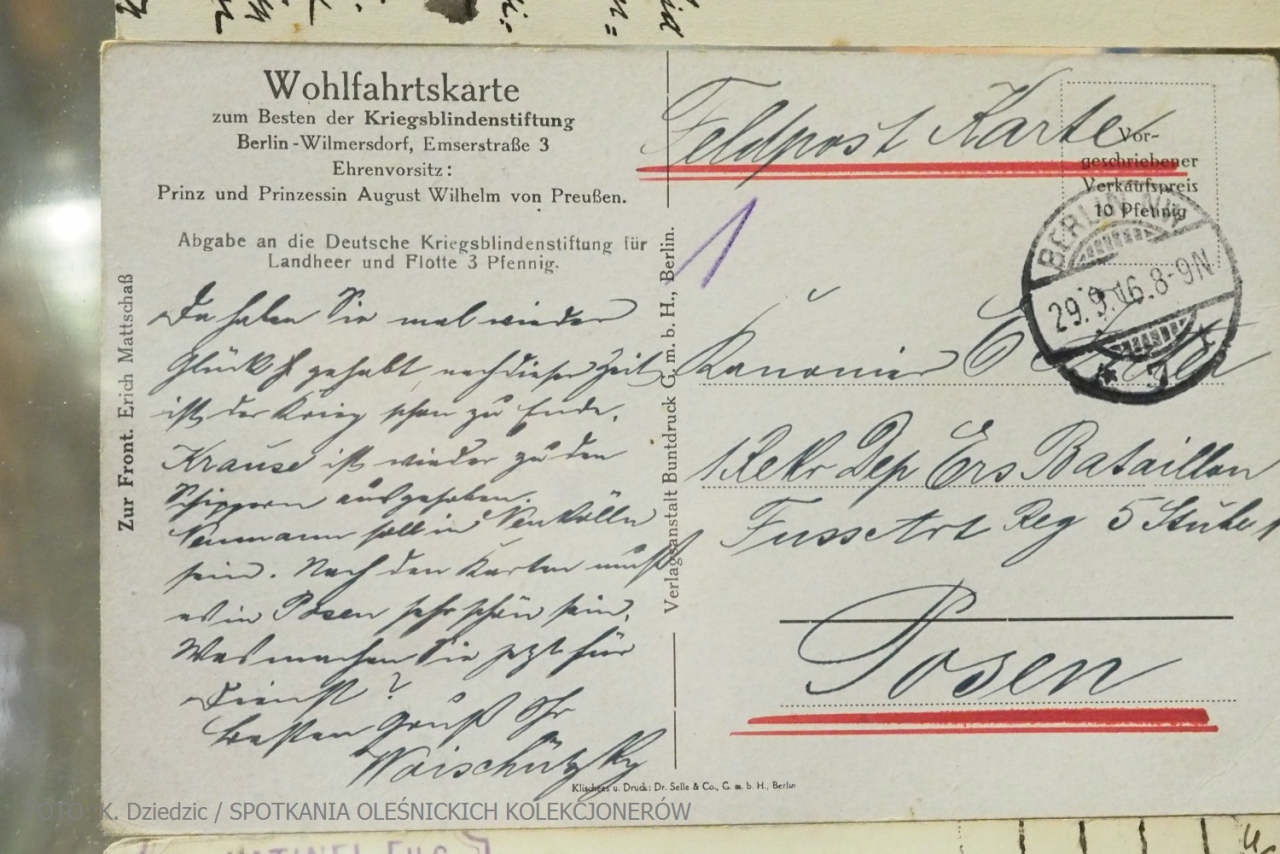 Wohlfahrtskarte
zum Besten der Kriegsblindenstiftung
Berlin-Wilmersdorf, Emserstraße 3
Ehrenvorsitz:
Prinz und Prinzessin August Wilhelm von Preußen.
Abgabe an die Deutsche Kriegsblindenstiftung für
Landheer und Flotte 3 Pfennig.
Zur Front. Erich Mattschaß
Da haben Sie mal wieder
Glück gehabt, nach dieser Zeit
ist der Krieg schon zu Ende.
Krause ist wieder zu den
Schippern ausgehoben.
Neumann soll in Neukölln
sein. Nach den Karten muß
es in Posen sehr schön sein.
Was machen Sie jetzt für
Dienst?
Besten Gruß Ihr
Waischützky
Verlagsanstalt Buntdruck G. m. b. H., Berlin.
Feldpost Karte
Vor-
geschriebener
Verkaufspreis
10 Pfennig
BERLIN NW
29.9.16.8-9N
1
Kanonier
1 Rekr Dep Ers Bataillon
Fussart Reg 5 Stube
Posen
Klischees u. Druck: Dr. Selle & Co., G. m. b. H., Berlin
FOTO: K. Dziedzic / SPOTKANIA OLEŚNICKICH KOLEKCJONERÓW